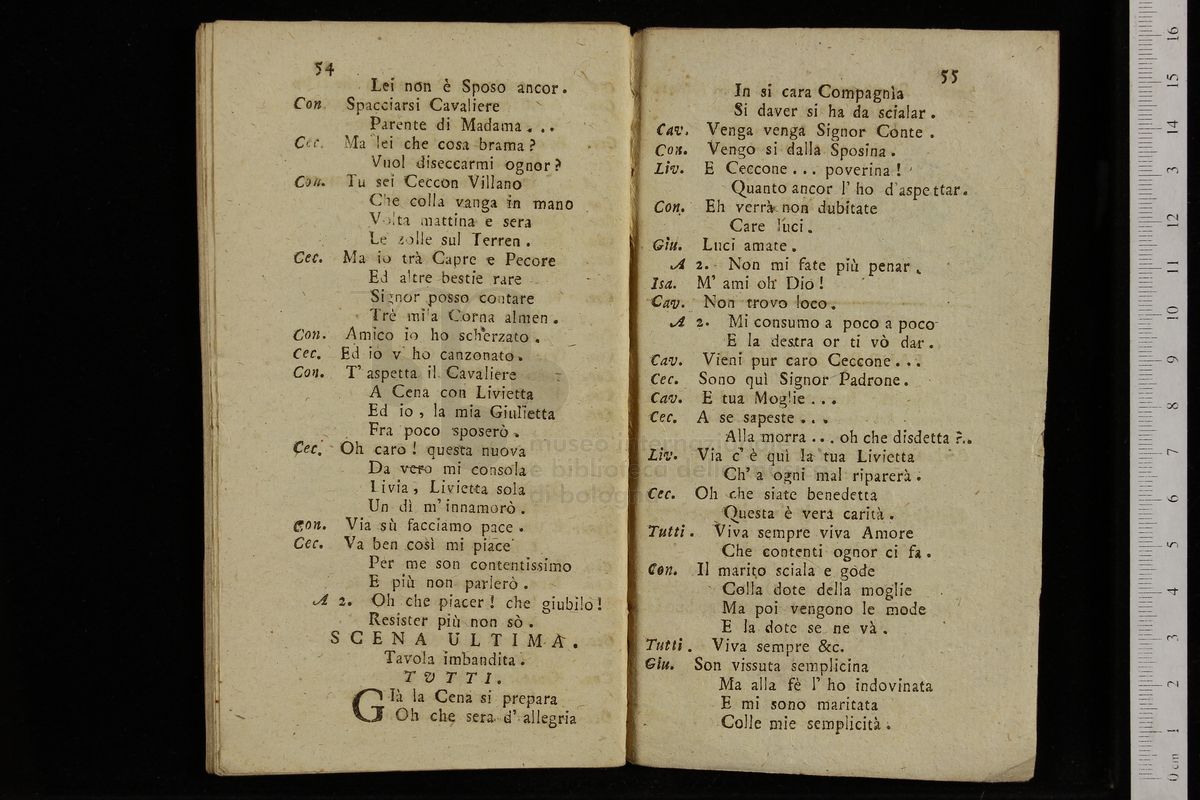 54
Lei non è Sposo ancor.
Con. Spacciarsi Cavaliere
Parente di Madama...
Cec. Ma lei che cosa brama?
Vuol diseccarmi ognor?
Con. Tu sei Ceccon Villano
Che colla vanga in mano
Volta mattina e sera
Le zolle sul Terren.
Cec. Ma io trà Capre e Pecore
Ed altre bestie rare
Signor posso contare
Trè mila Corna almen.
Con. Amico io ho scherzato.
Cec. Ed io v' ho canzonato.
Con. T' aspetta il Cavaliere
A Cena con Livietta
Ed io, la mia Giulietta
Fra poco sposerò.
Cec. Oh caro! questa nuova
Da vero mi consola
Livia, Livietta sola
Un dì m' innamorò.
Con. Via sù facciamo pace.
Cec. Va ben così mi piace
Per me son contentissimo
E più non parlerò.
A 2. Oh che piacer! che giubilo!
Resister più non sò.
SCENA ULTIMA.
Tavola imbandita.
TUTTI.
Già la Cena si prepara
Oh che sera d' allegria
55
In si cara Compagnìa
Si daver si ha da scialar.
Cav. Venga venga Signor Conte.
Con. Vengo si dalla Sposina.
Liv. E Ceccone... poverina!
Quanto ancor l' ho d'aspettar.
Con. Eh verrà non dubitate
Care luci.
Giu. Luci amate.
A 2. Non mi fate più penar.
Isa. M' ami oh Dio!
Cav. Non trovo loco.
A 2. Mi consumo a poco a poco
E la destra or ti vò dar.
Cav. Vieni pur caro Ceccone...
Cec. Sono quì Signor Padrone.
Cav. E tua Moglie...
Cec. A se sapeste...
Alla morra... oh che disdetta?..
Liv. Via c' è quì la tua Livietta
Ch' a ogni mal riparerà.
Cec. Oh che siate benedetta
Questa è vera carità.
Tutti. Viva sempre viva Amore
Che contenti ognor ci fa.
Con. Il marito sciala e gode
Colla dote della moglie
Ma poi vengono le mode
E la dote se ne và.
Tutti. Viva sempre &c.
Giu. Son vissuta semplicina
Ma alla fè l' ho indovinata
E mi sono maritata
Colle mie semplicità.
museo internazionale
e biblioteca della musica
di bologna
0 cm 1 2 3 4 5 6 7 8 9 10 11 12 13 14 15 16